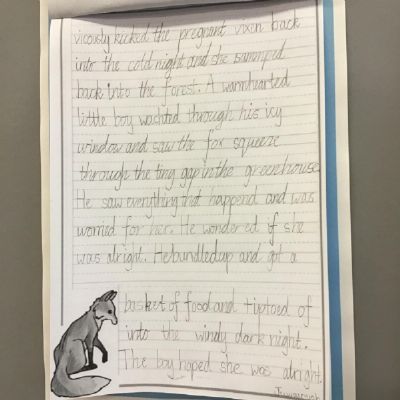 vicously kicked the pregnant vixen back
into the cold night and she sammped
back into the forest. A warmhearted
little boy wachted through his ivy
window and saw the fox squeeze
through the ting gap in the greenhouse
He saw everything that happend and was
worried for her. He wondered if she
was alright. He bundled up and got a
basket of food and tiptoed of
into the windy dark night.
The boy hoped she was alright